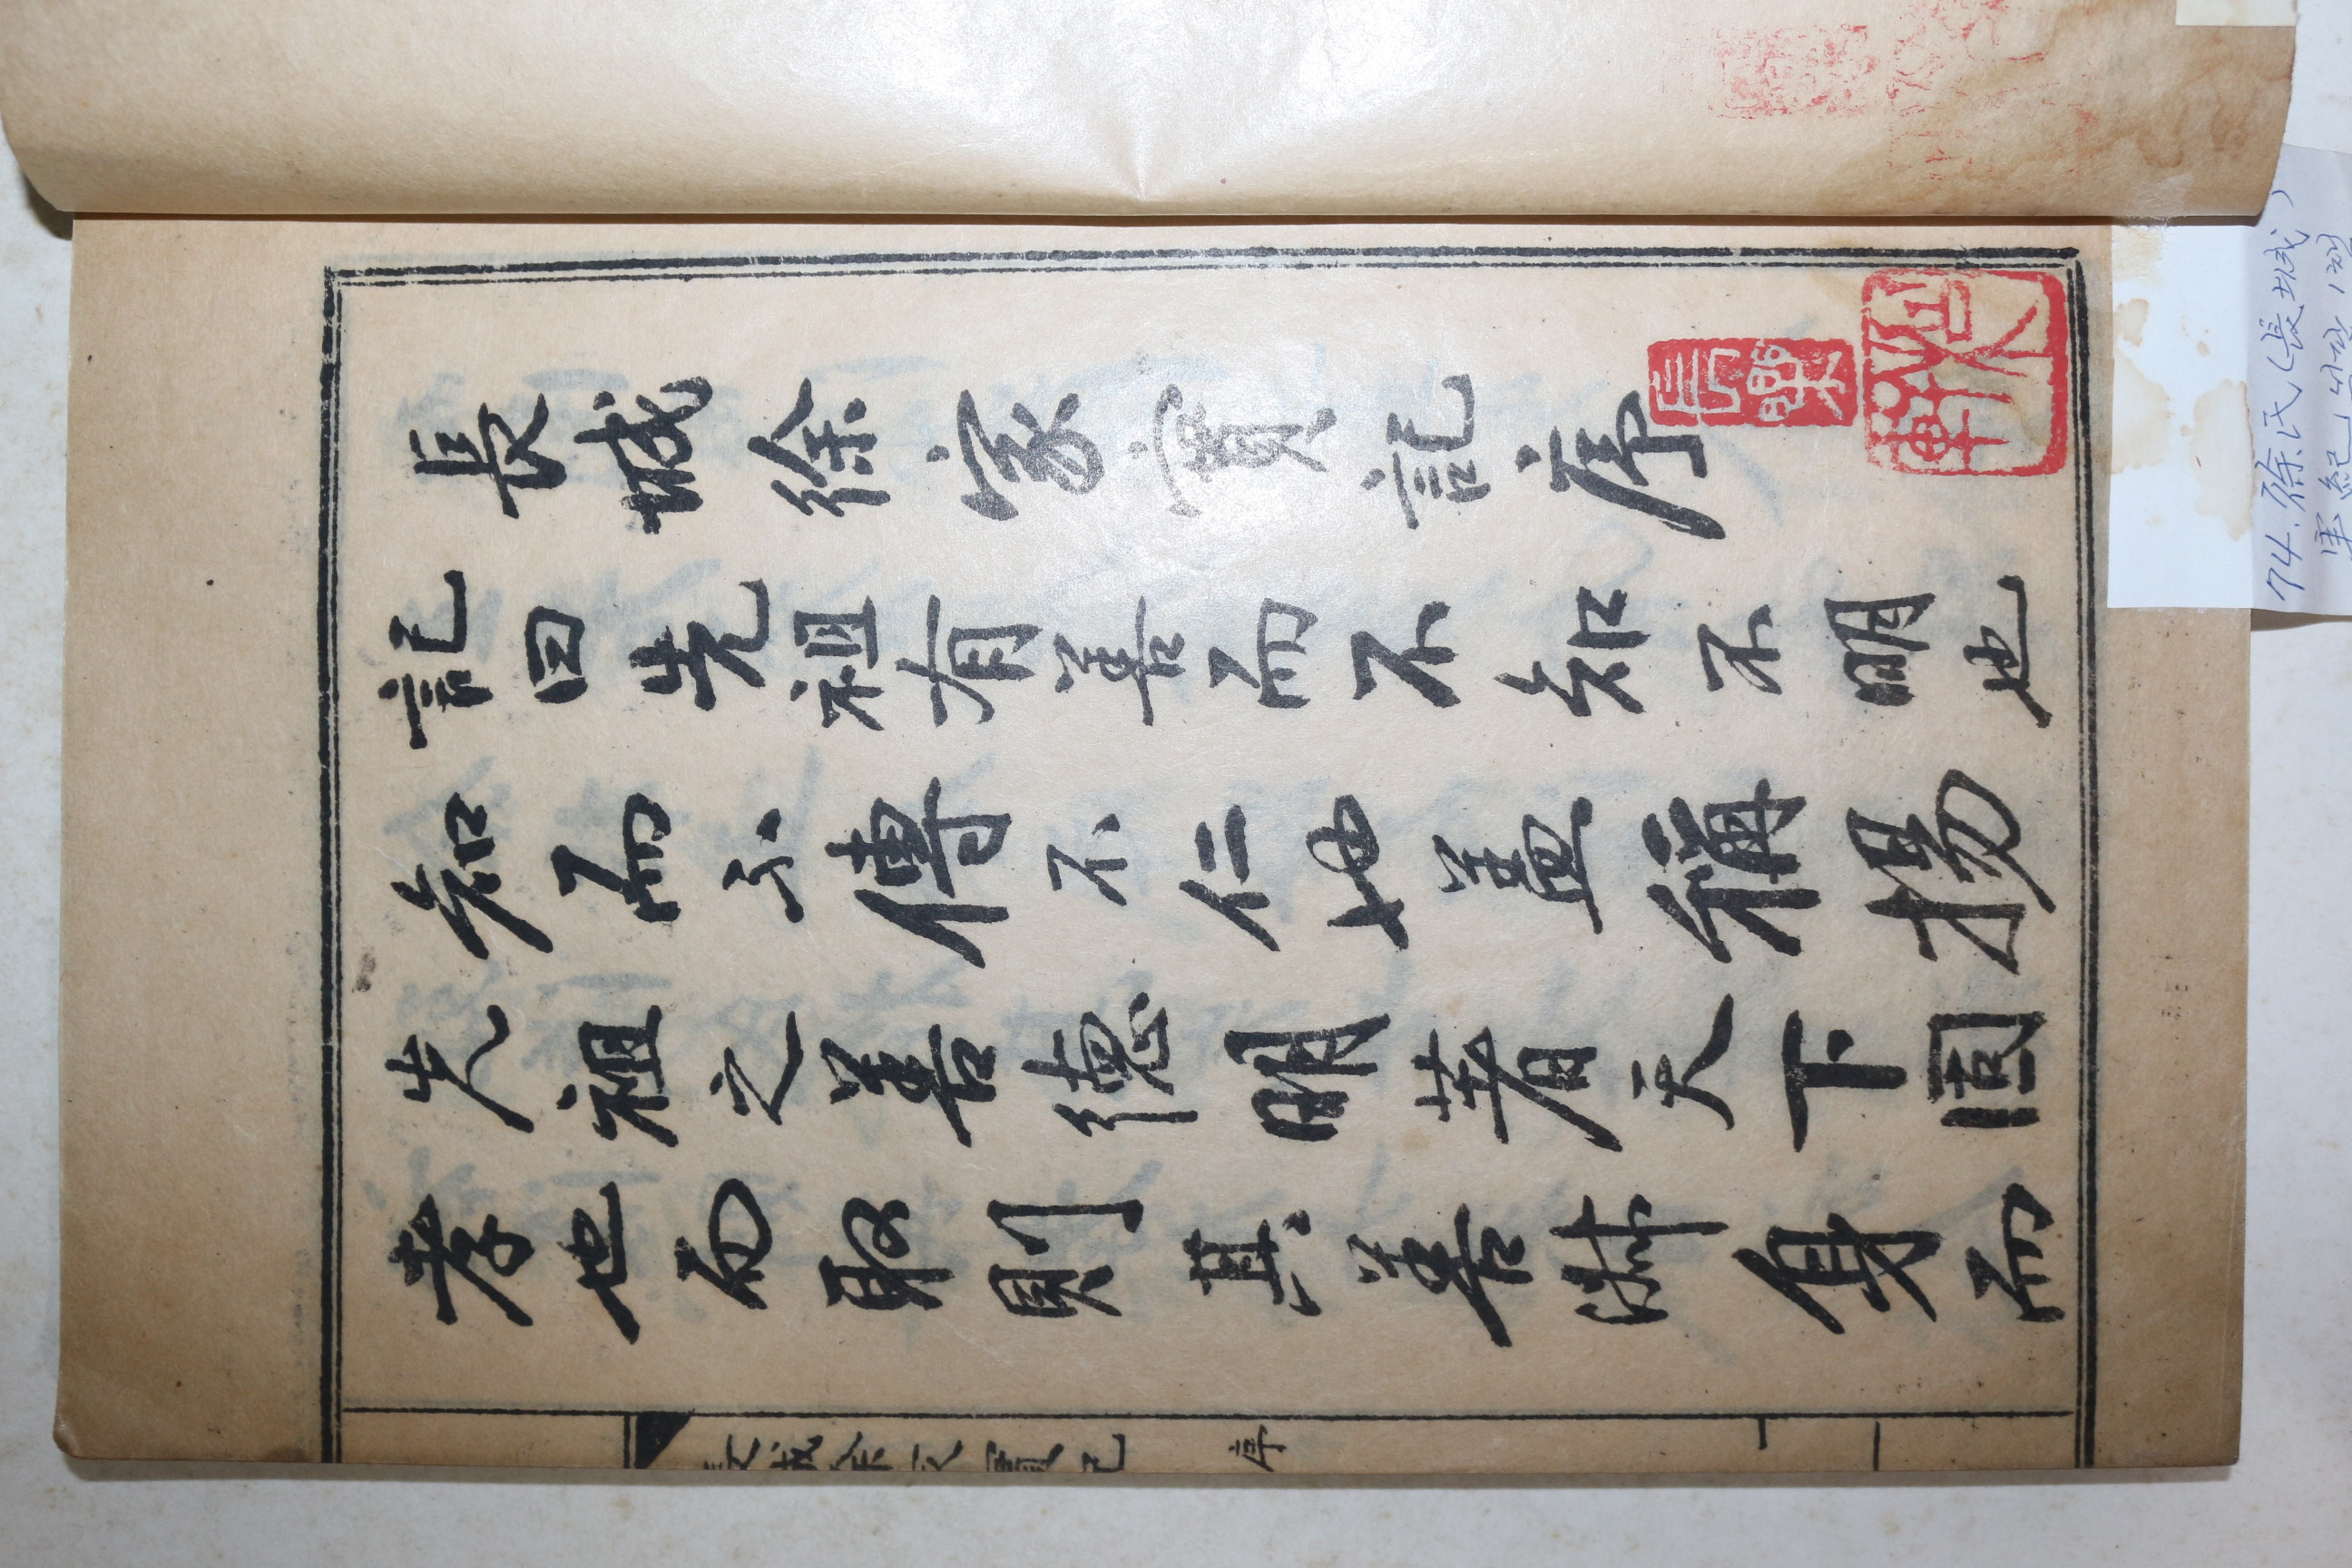 長城徐家實記序
記曰先祖有善而不知不明也
知而不傳不仁也盖稱揚
先祖之善德明著天下固
孝也而取則其善淋身而
序
一
長樂
軒
74. 徐氏(長城)
実紀